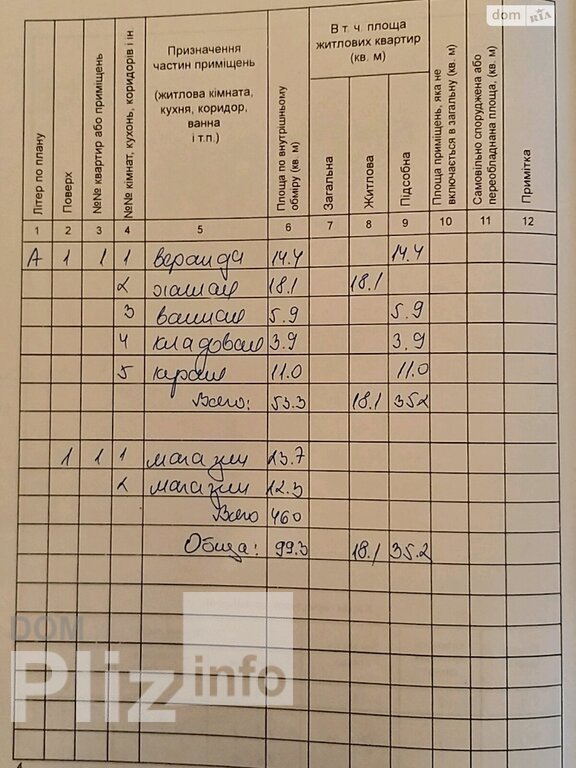 dom RIA
Літер по плану
Поверх
№№ квартир або приміщень
№№ кімнат, кухонь, коридорів і ін.
Призначення
частин приміщень
(житлова кімната,
кухня, коридор,
ванна
і т.п.)
Площа по внутрішньому
обміру (кв. м)
В т. ч. площа
житлових квартир
(кв. м)
Загальна
Житлова
Підсобна
Площа приміщень, яка не
включається в загальну (кв. м)
Самовільно споруджена або
переобладнана площа, (кв. м)
Примітка
1 2 3 4 5 6 7 8 9 10 11 12
А 1 1 1 веранда 14.4 14.4
2 жилая 18.1 18.1
3 ванная 5.9 5.9
4 кладовая 3.9 3.9
5 кухня 11.0 11.0
Всего: 53.3 18.1 35.2
1 1 1 магазин 23.7
2 магазин 22.3
Всего 46.0
Общая: 99.3 18.1 35.2
DOM
Pliz info